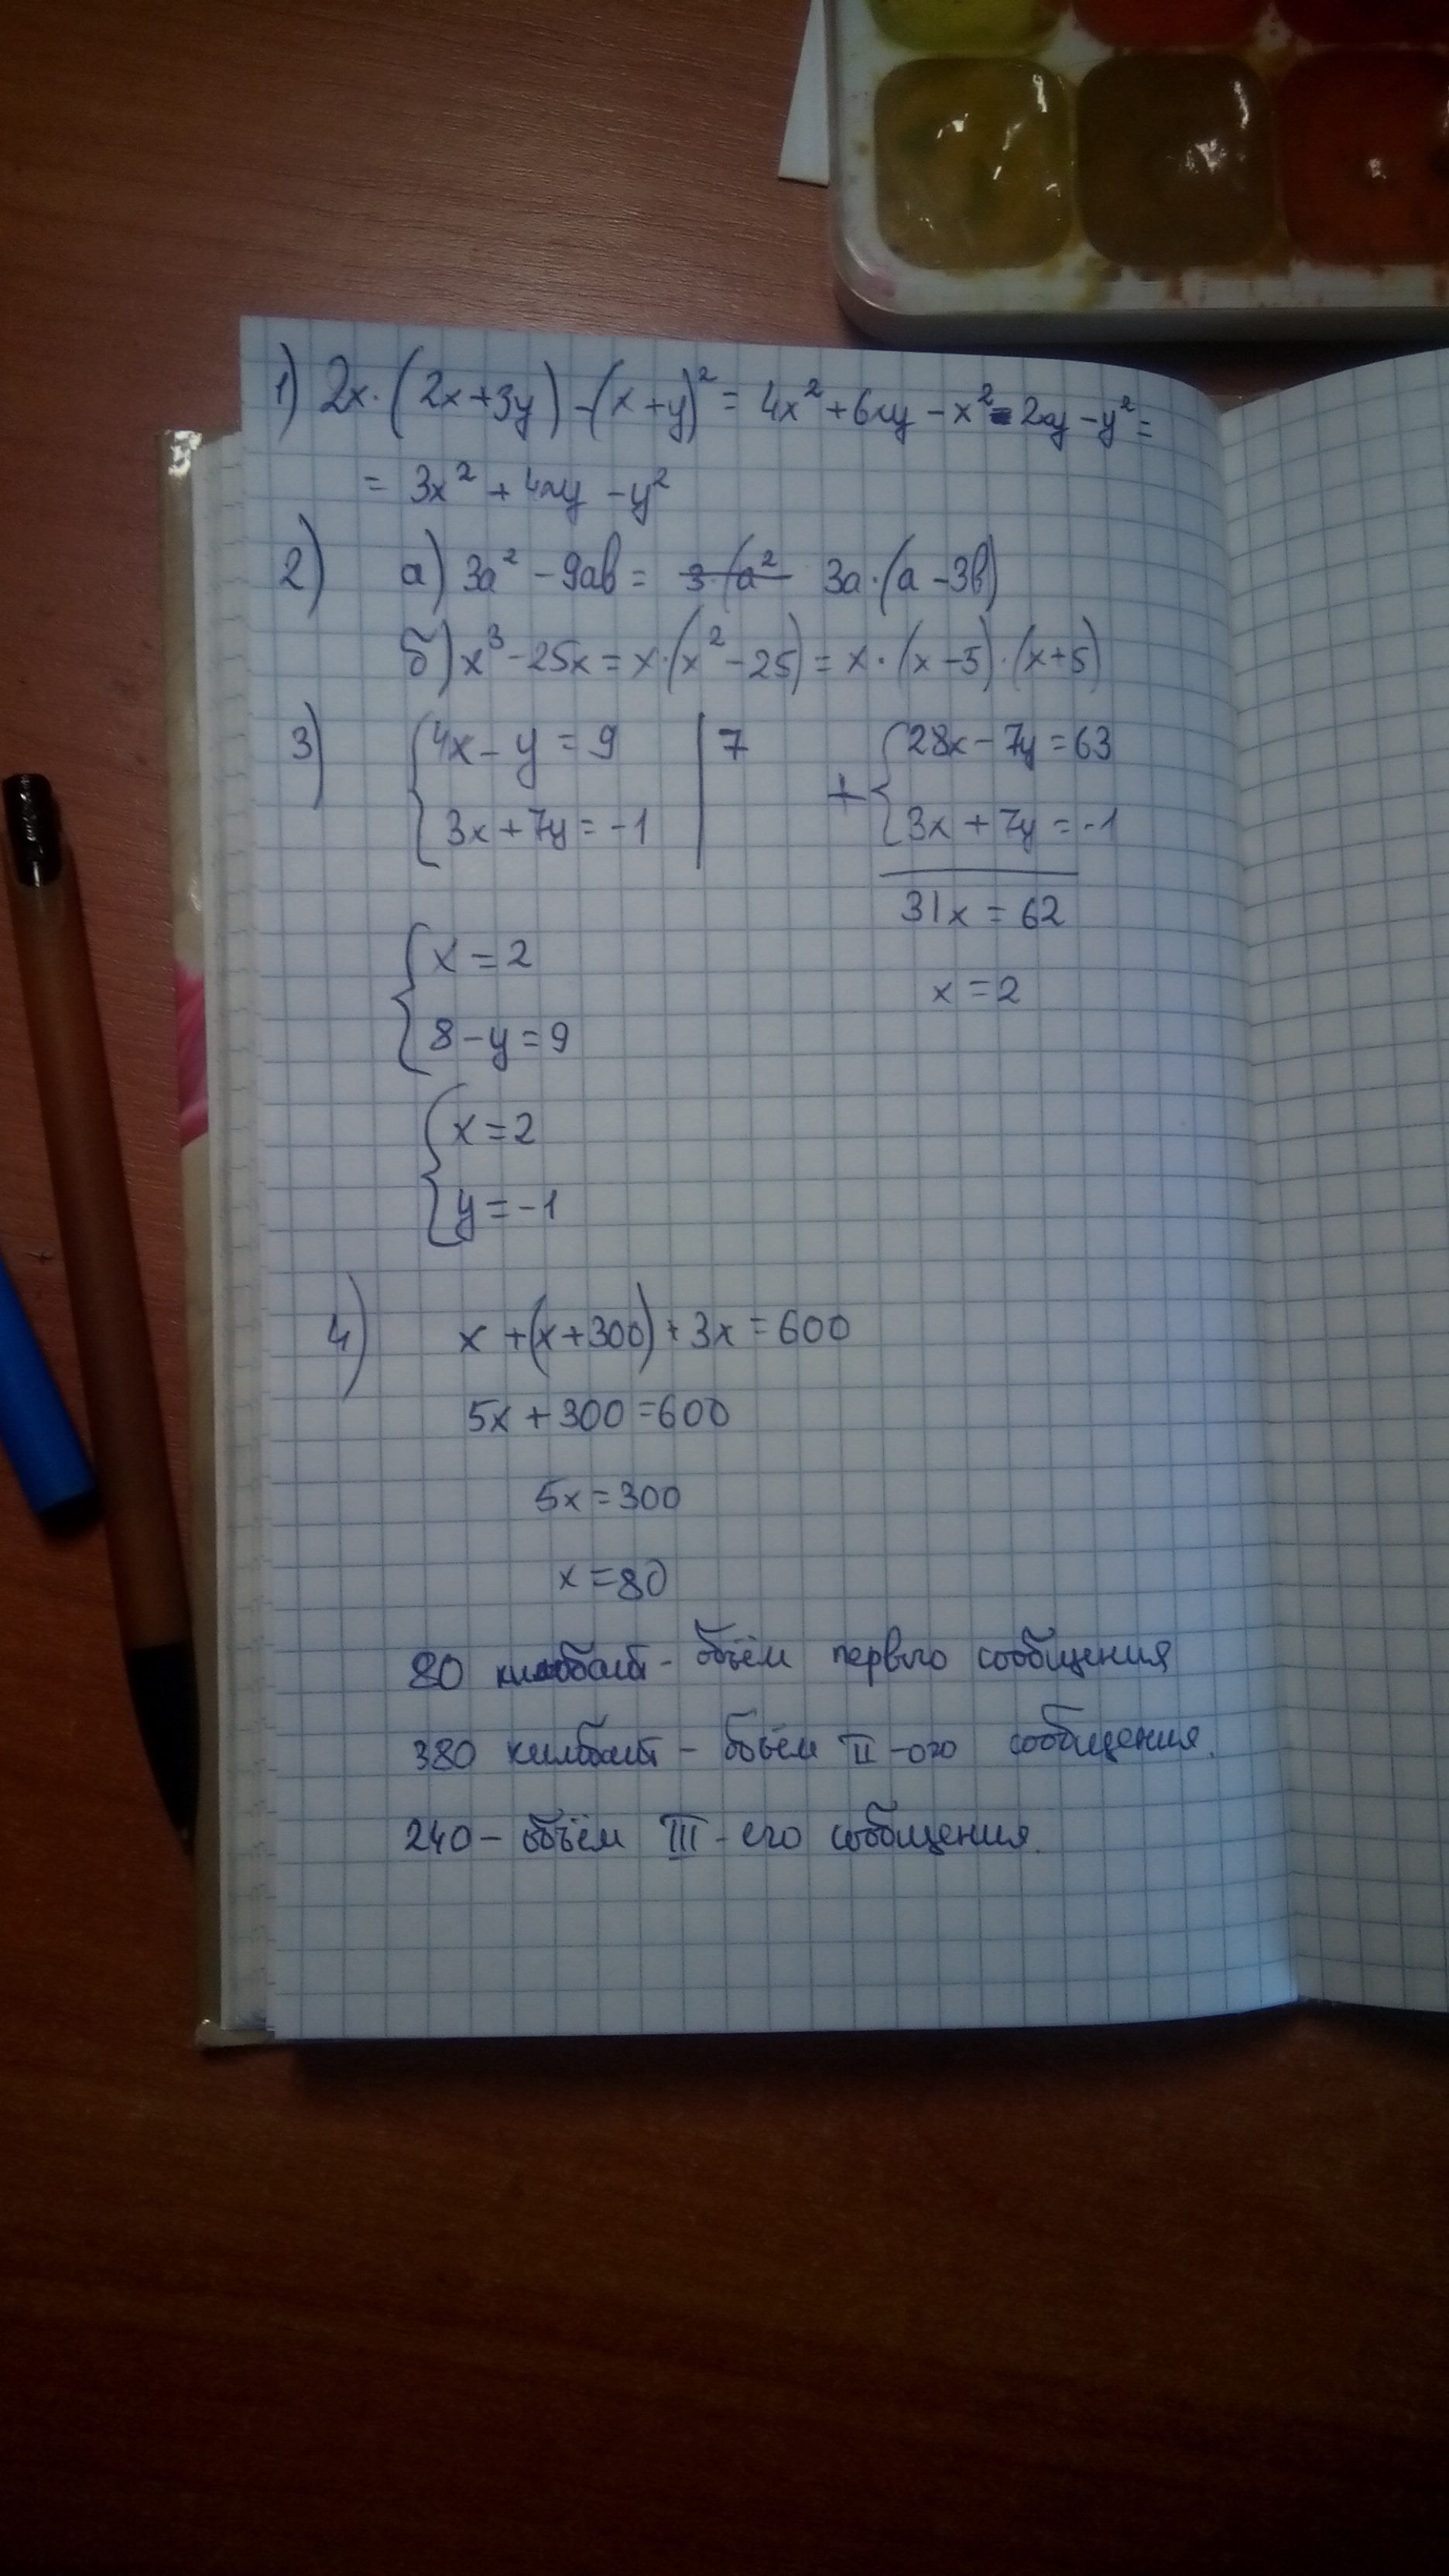 1) 2x·(2x+3y)-(x+y)² = 4x²+6xy-x²-2xy-y²=
= 3x²+4xy-y²
2) а) 3a²-9ab= 3·(a² 3a·(a-3b)
б) x³-25x=x·(x²-25)=x·(x-5)·(x+5)
3) {4x-y=9 | 7 + {28x-7y=63
3x+7y=-1 3x+7y=-1
31x=62
{x=2 x=2
8-y=9
{x=2
y=-1
4) x+(x+300)+3x=600
5x+300=600
5x=300
x=80
80 - объём первого сообщения
380 килбайт - бъём II-ого сообщения.
240- объём III-его сообщения.